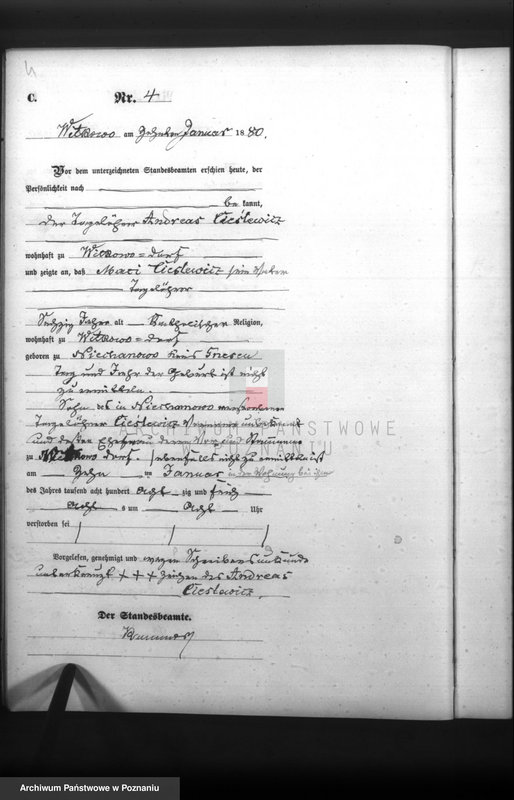 4
C. Nr. 4
Witkowo am Zehnten Januar 1880.
Vor dem unterzeichneten Standesbeamten erschien heute, der
Persönlichkeit nach
be kannt,
der Tagelöhner Andreas Cieślewicz
wohnhaft zu Witkowo-dorf
und zeigte an, daß Maci Cieslewicz sein Vater
Tagelöhner
Sechzig Jahre alt Katholischer Religion,
wohnhaft zu Witkowo-dorf
geboren zu Niechanowo Kreis Gnesen
Tag und Jahr der Geburt ist nicht
zu ermitteln.
Sohn des in Niechanowo verstorbenen
Tagelöhner Cieślewicz Vorname unbekannt
und dessen Ehefrau deren Vor und Stammname
zu Witkowo dorf ebenfalls nicht zu ermitteln ist
am Zehn ten Januar in der Wohnung bei ihm
des Jahres tausend acht hundert acht zig und früh
Acht s um Acht Uhr
verstorben sei
Vorgelesen, genehmigt und wegen Schreibensunkunde
unterkreuzt + + + Zeichen des Andreas
Cieslewicz.
Der Standesbeamte.
ARCHIWUM PAŃSTWOWE
W POZNANIU
Archiwum Państwowe w Poznaniu